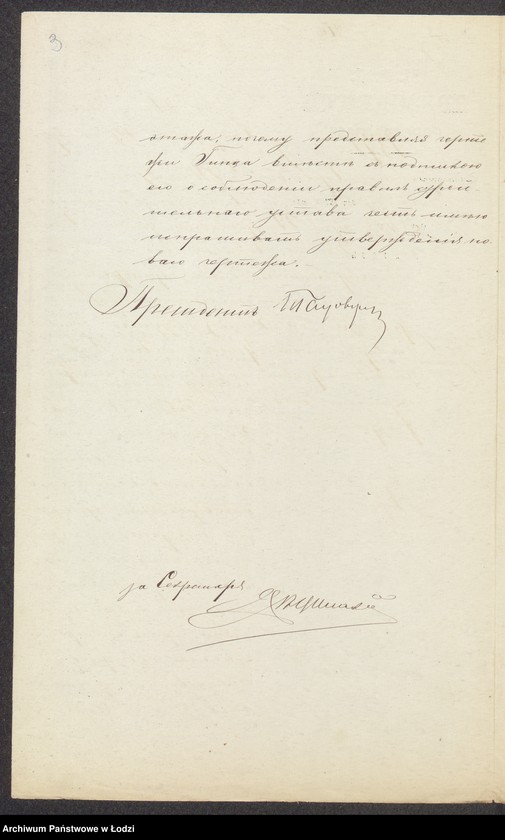 3
этажа, почему представляя черте
жи Гинца вместѣ съ подпискою
его о соблюденіи правилъ строи
тельнаго устава честь имѣю
испрашивать утвержденія но
ваго чертежа.
Президентъ
за Секретаря
Archiwum Państwowe w Łodzi